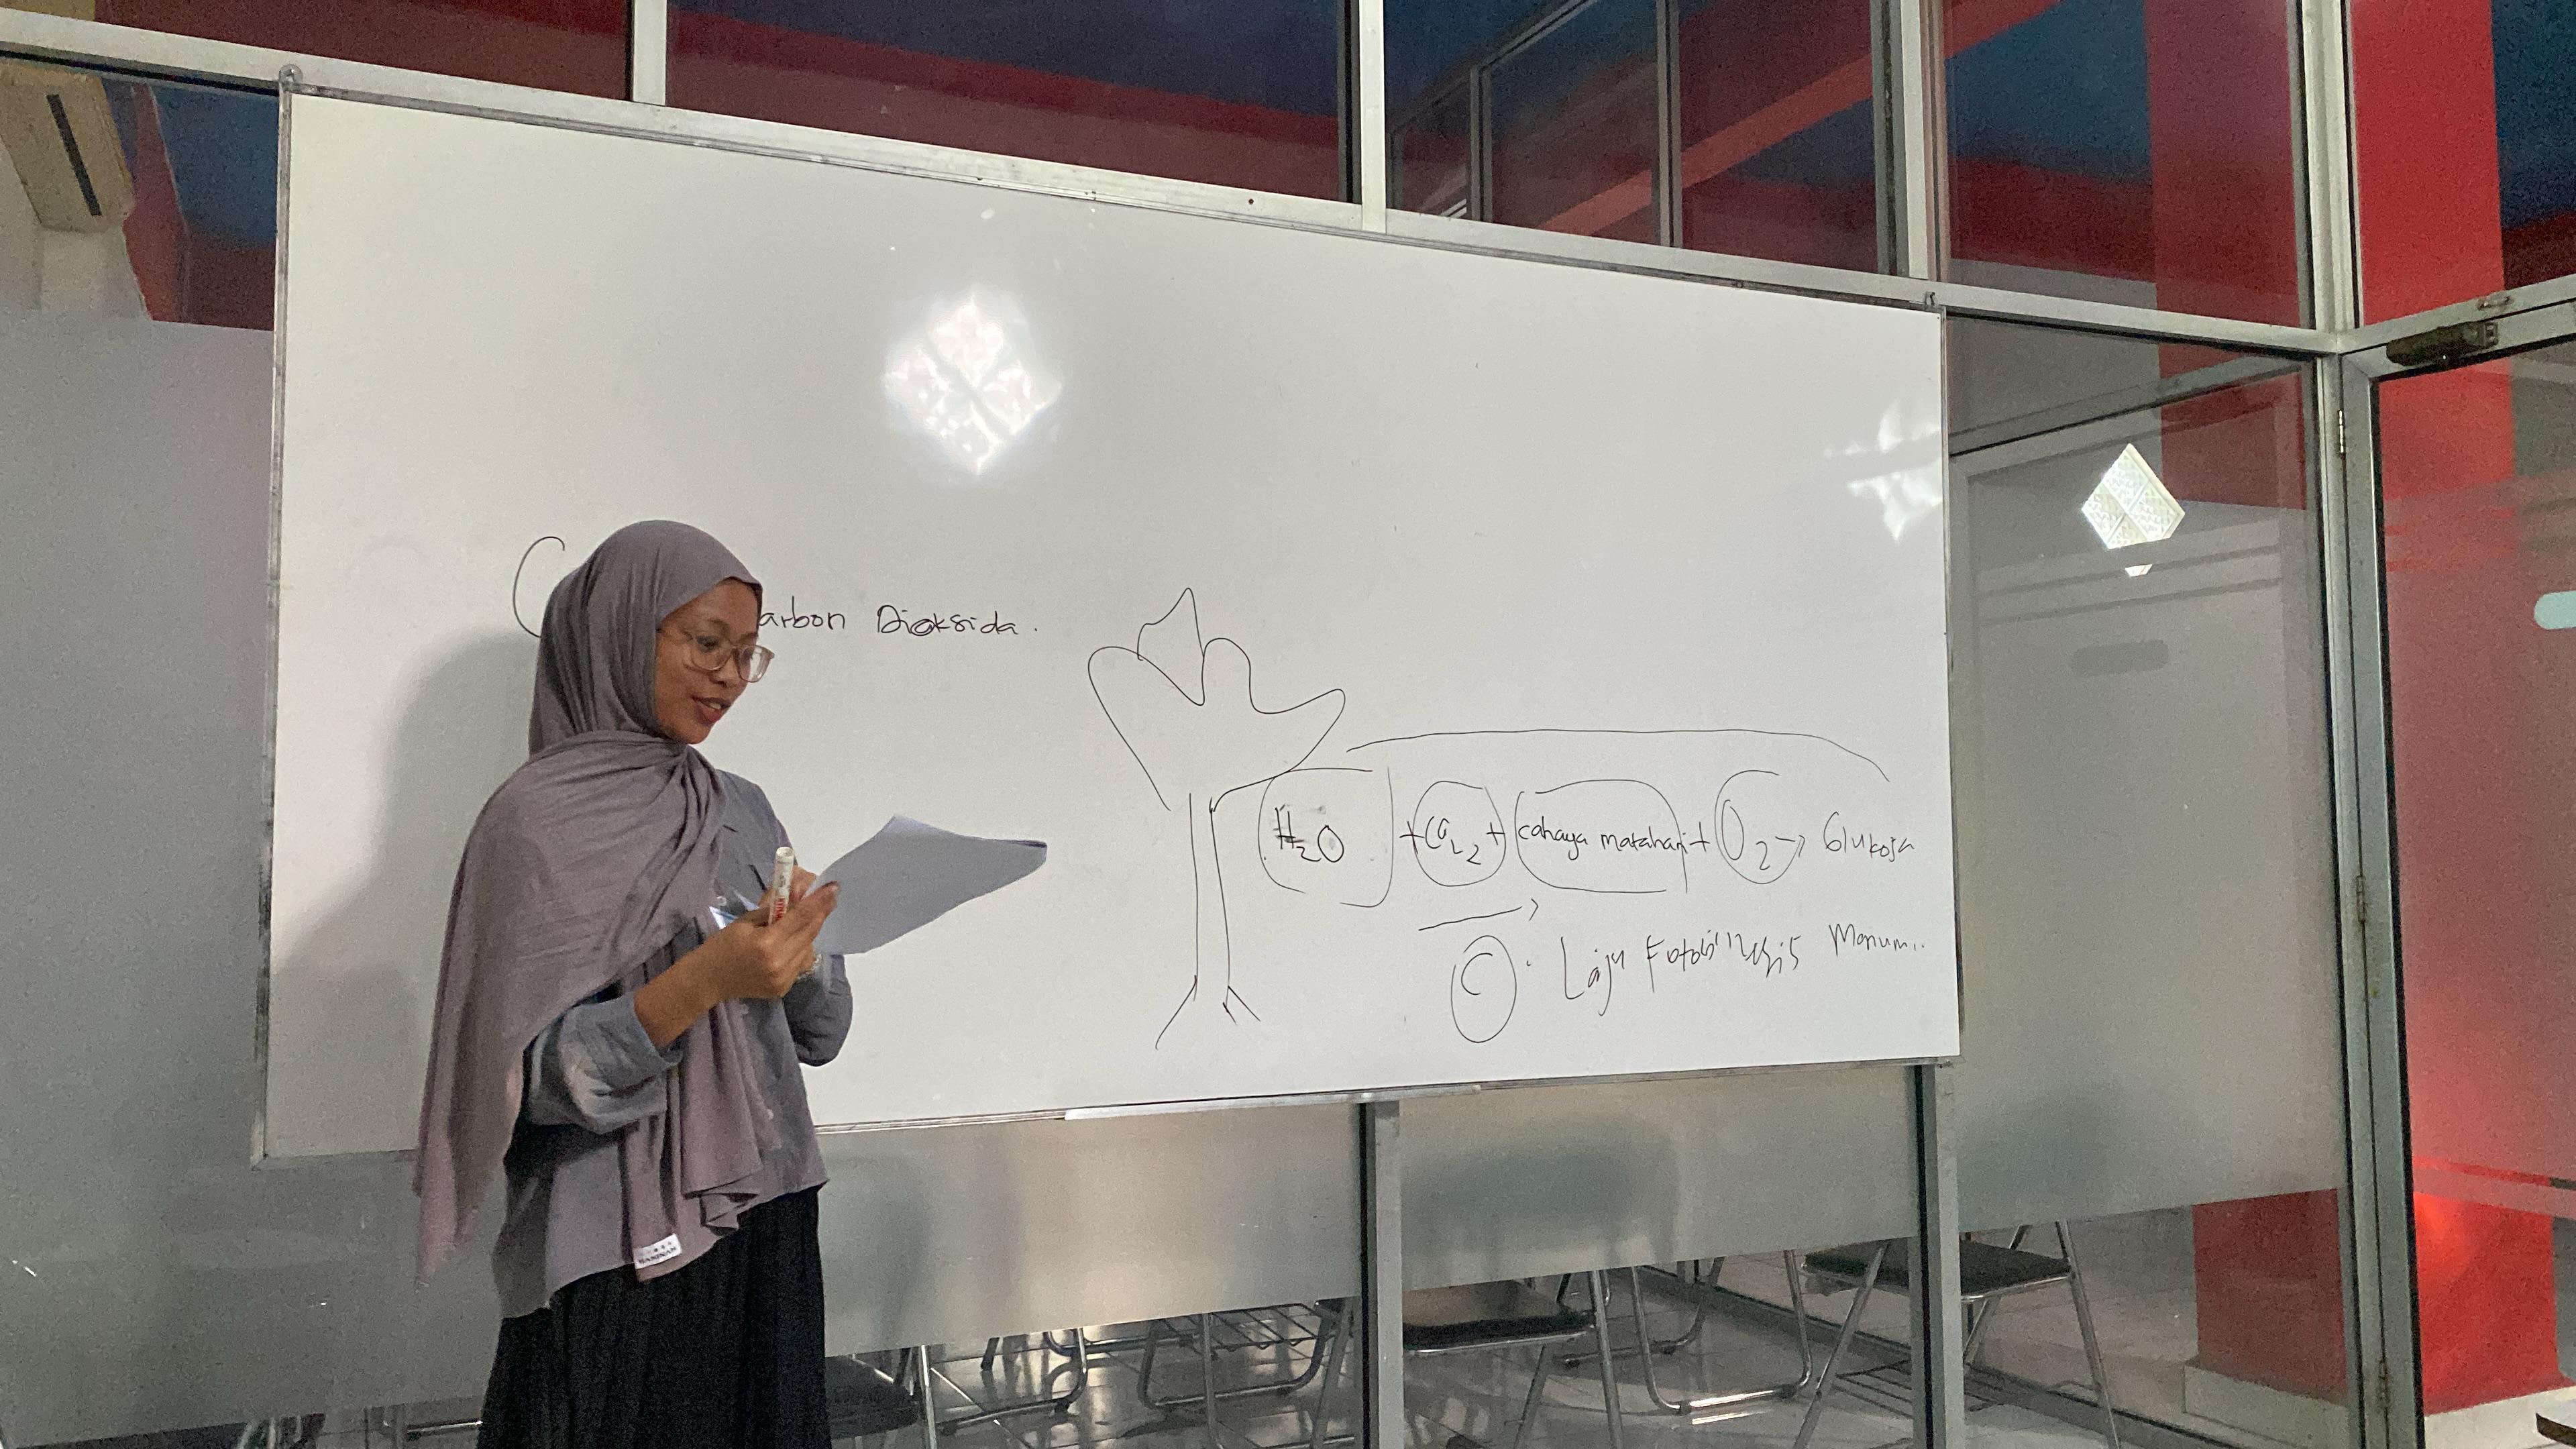 C arbon Dioksida.
H2O + CO2 + cahaya matahari + O2 → Glukosa
C. Laju Fotosintesis Menurun..